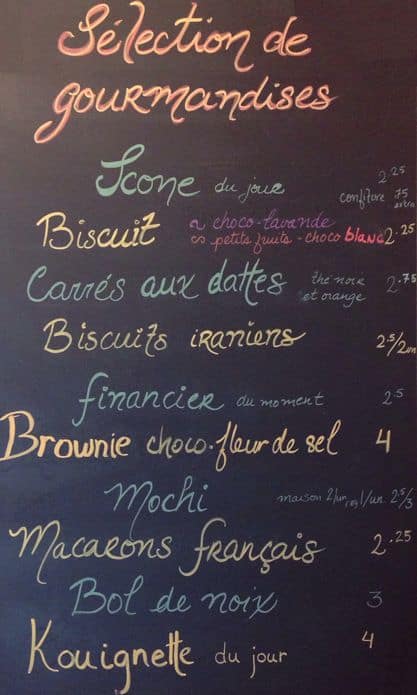 Sélection de
gourmandises
Scone du jour 2.25
confiture 75 extra
Biscuit choco-lavande
petits fruits - choco blanc 2.25
Carrés aux dattes thé noir 2.75
et orange
Biscuits iraniens 2.5/2un
financier du moment 2.5
Brownie choco.fleur de sel 4
Mochi maison 2/un 1/un. 2.5/3
Macarons français 2.25
Bol de noix 3
Kouignette du jour 4